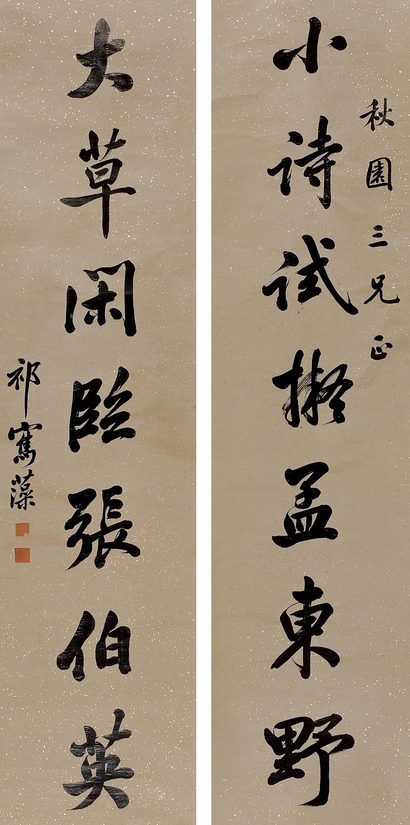 秋園三兄正
小詩試擬孟東野
大草閑臨張伯英
祁寯藻